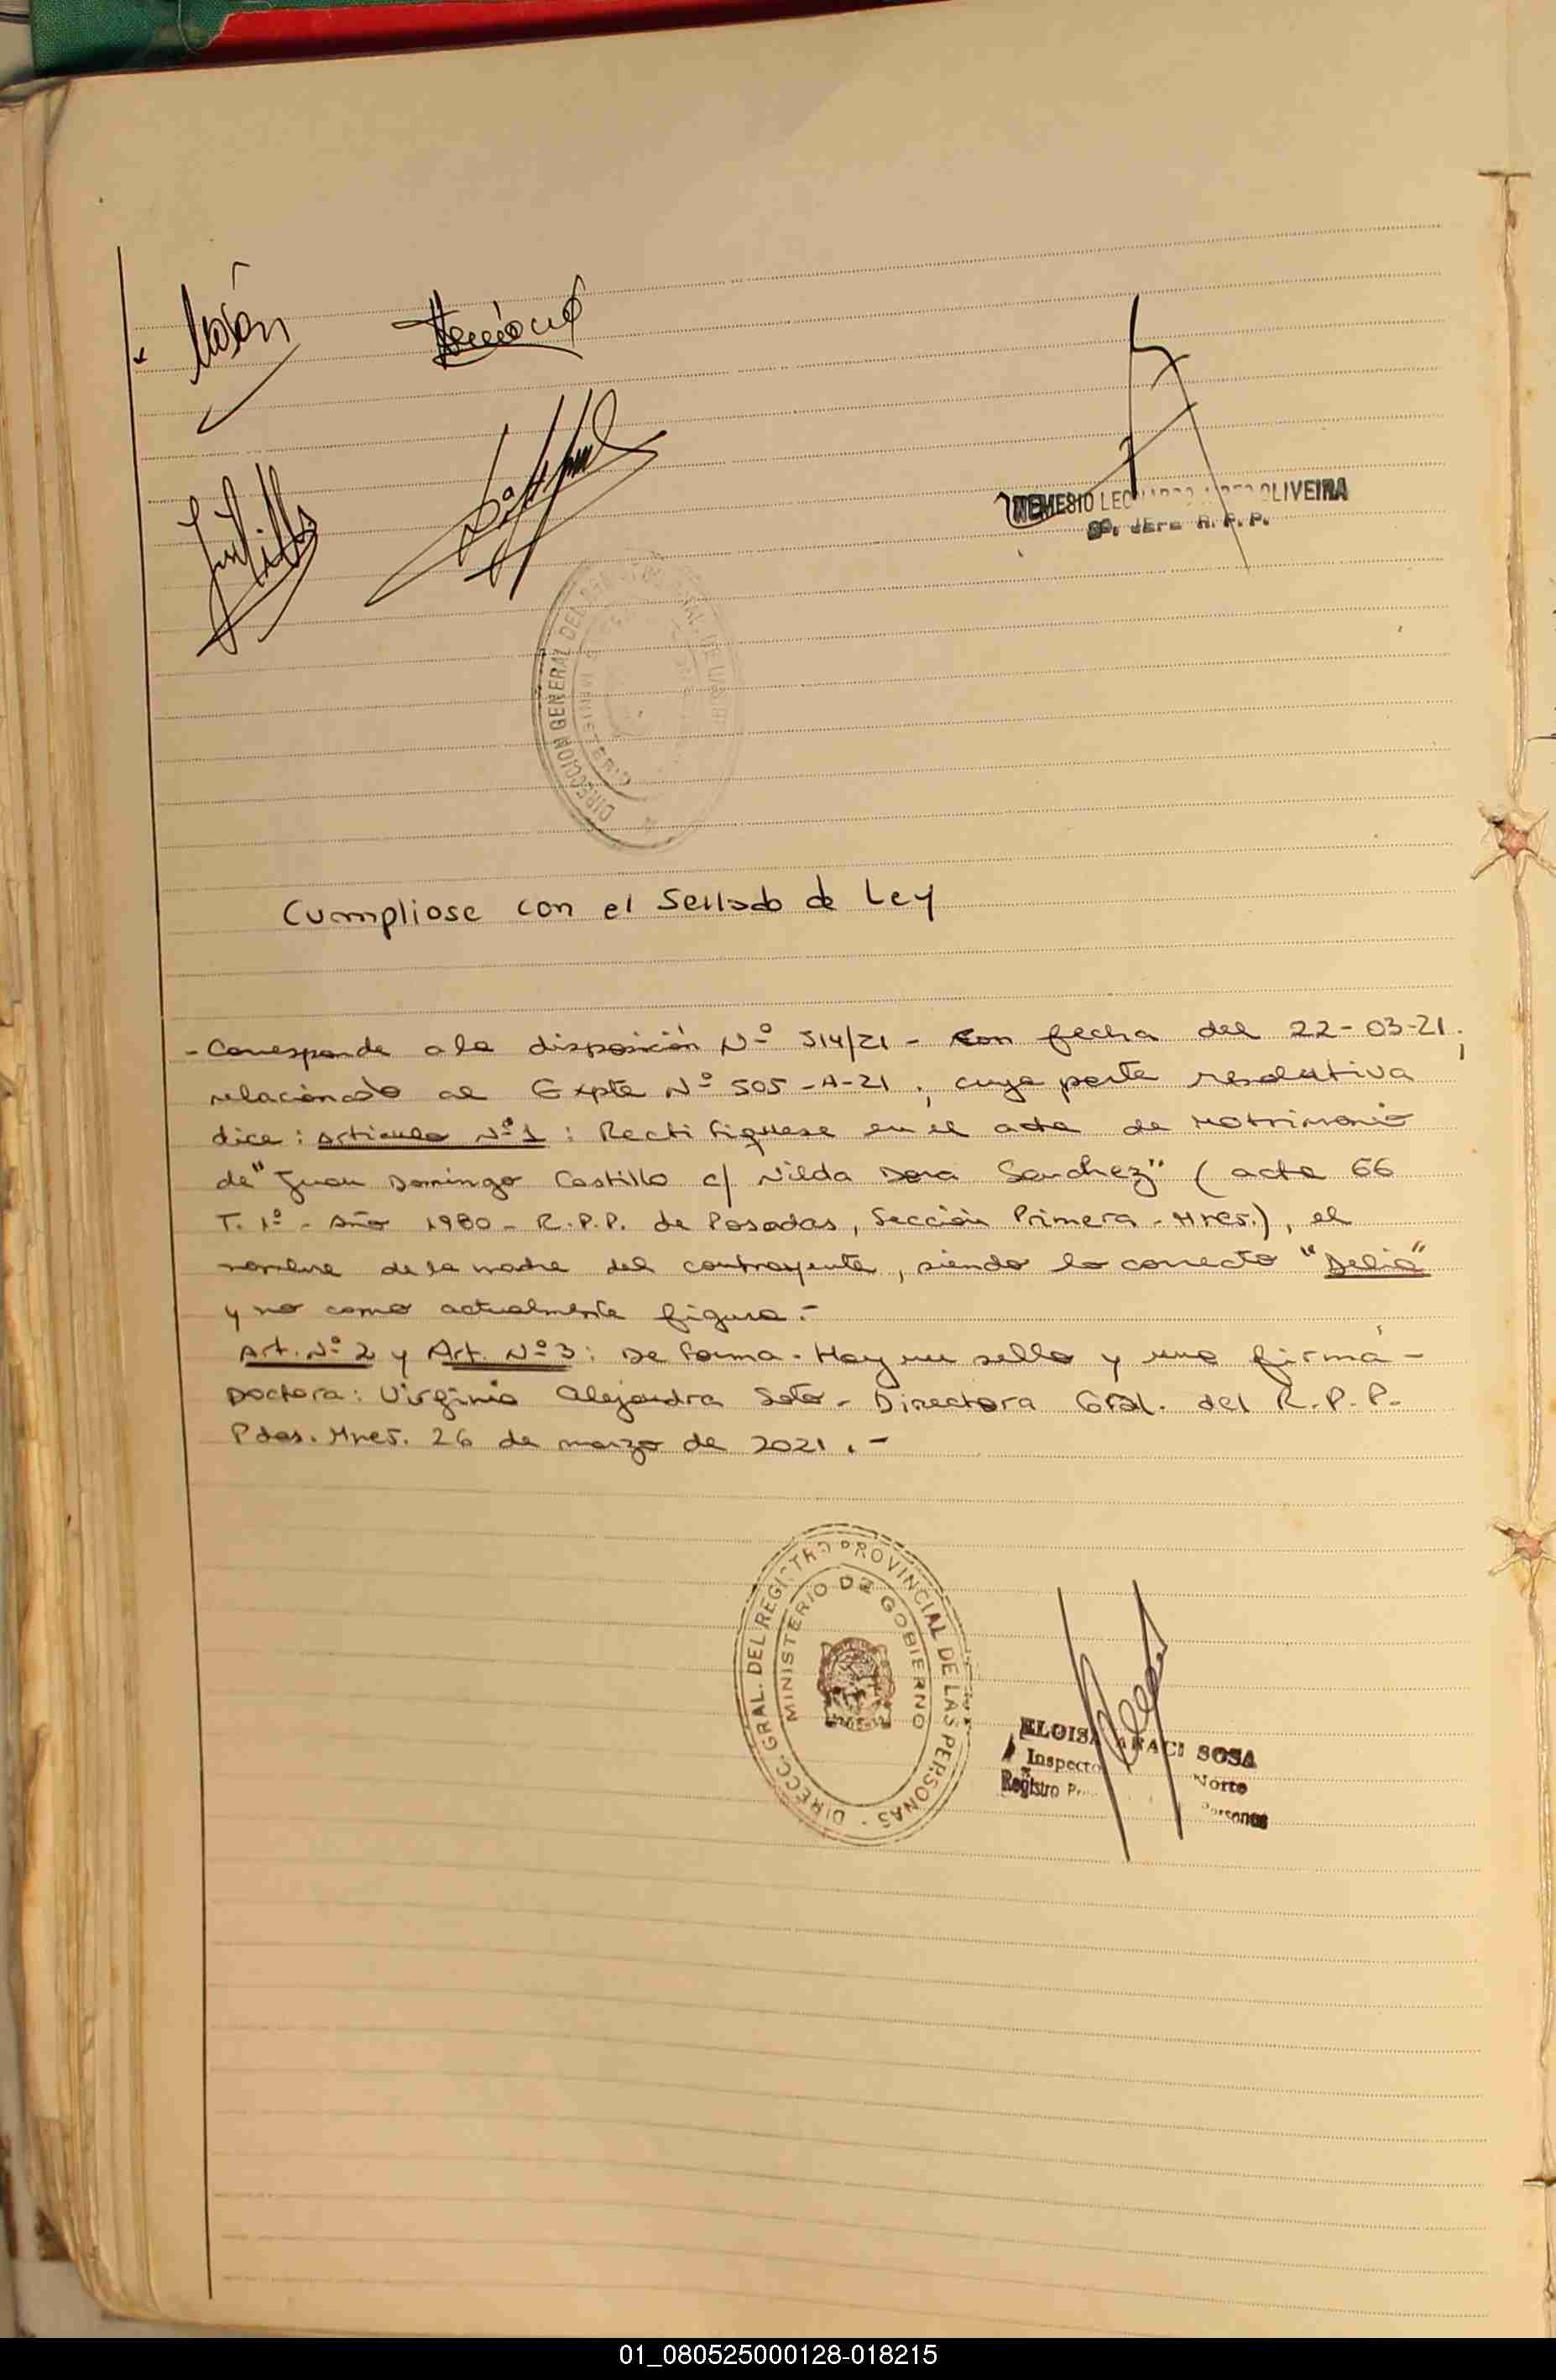 NEMESIO LEO OLIVEIRA
R.P.P.
DIRECCION GENERAL DEL
Cumpliose con el Sellado de Ley
- Corresponde a la disposición Nº 514/21 - con fecha del 22-03-21;
relacionado al Expte Nº 505-A-21, cuya parte resolutiva
dice: Articulo Nº 1: Rectifiquese en el acta de Matrimonio
de "Juan Domingo Castillo c/ Nilda Dora Sanchez" (acta 66
T. 1º - Año 1980 - R.P.P. de Posadas, Sección Primera - Mnes.), el
nombre de la madre del contrayente, siendo lo correcto "Delia"
y no como actualmente figura.-
Art. Nº 2 y Art. Nº 3: De forma - Hay un sello y una firma -
Doctora: Virginia Alejandra Soto - Directora Gral. del R.P.P.
Pdas. Mnes. 26 de marzo de 2021.-
DIRECC. GRAL. DEL REGISTRO PROVINCIAL DE LAS PERSONAS
MINISTERIO DE GOBIERNO
ELOISA ARACI SOSA
Inspecto Norte
Registro P Personas
01_080525000128-018215